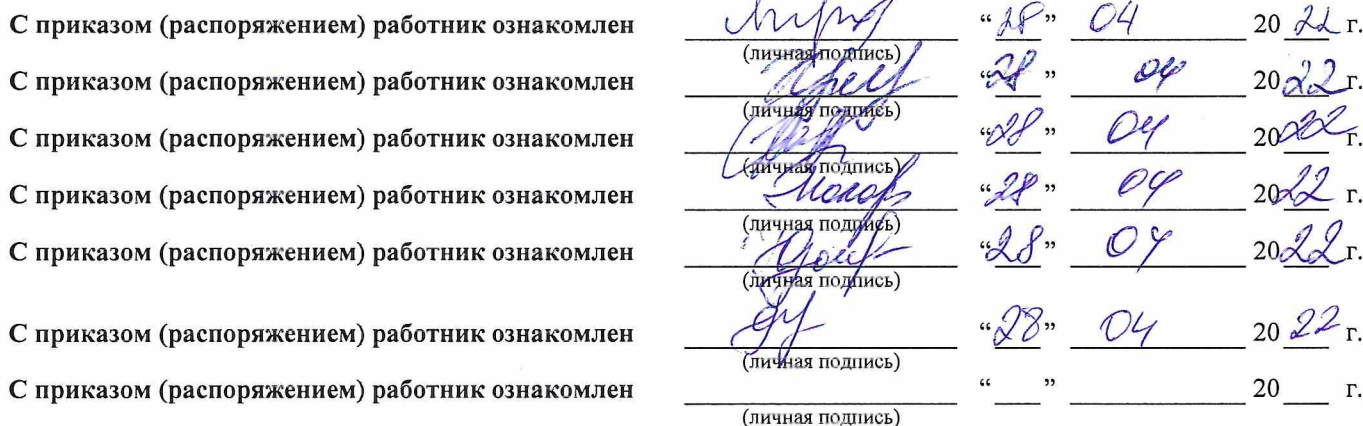 С приказом (распоряжением) работник ознакомлен “28” 04 2022 г.
(личная подпись)
С приказом (распоряжением) работник ознакомлен “28” 04 2022 г.
(личная подпись)
С приказом (распоряжением) работник ознакомлен “28” 04 2022 г.
(личная подпись)
С приказом (распоряжением) работник ознакомлен “28” 04 2022 г.
(личная подпись)
С приказом (распоряжением) работник ознакомлен “28” 04 2022 г.
(личная подпись)
С приказом (распоряжением) работник ознакомлен “28” 04 2022 г.
(личная подпись)
С приказом (распоряжением) работник ознакомлен “ ” 20 г.
(личная подпись)